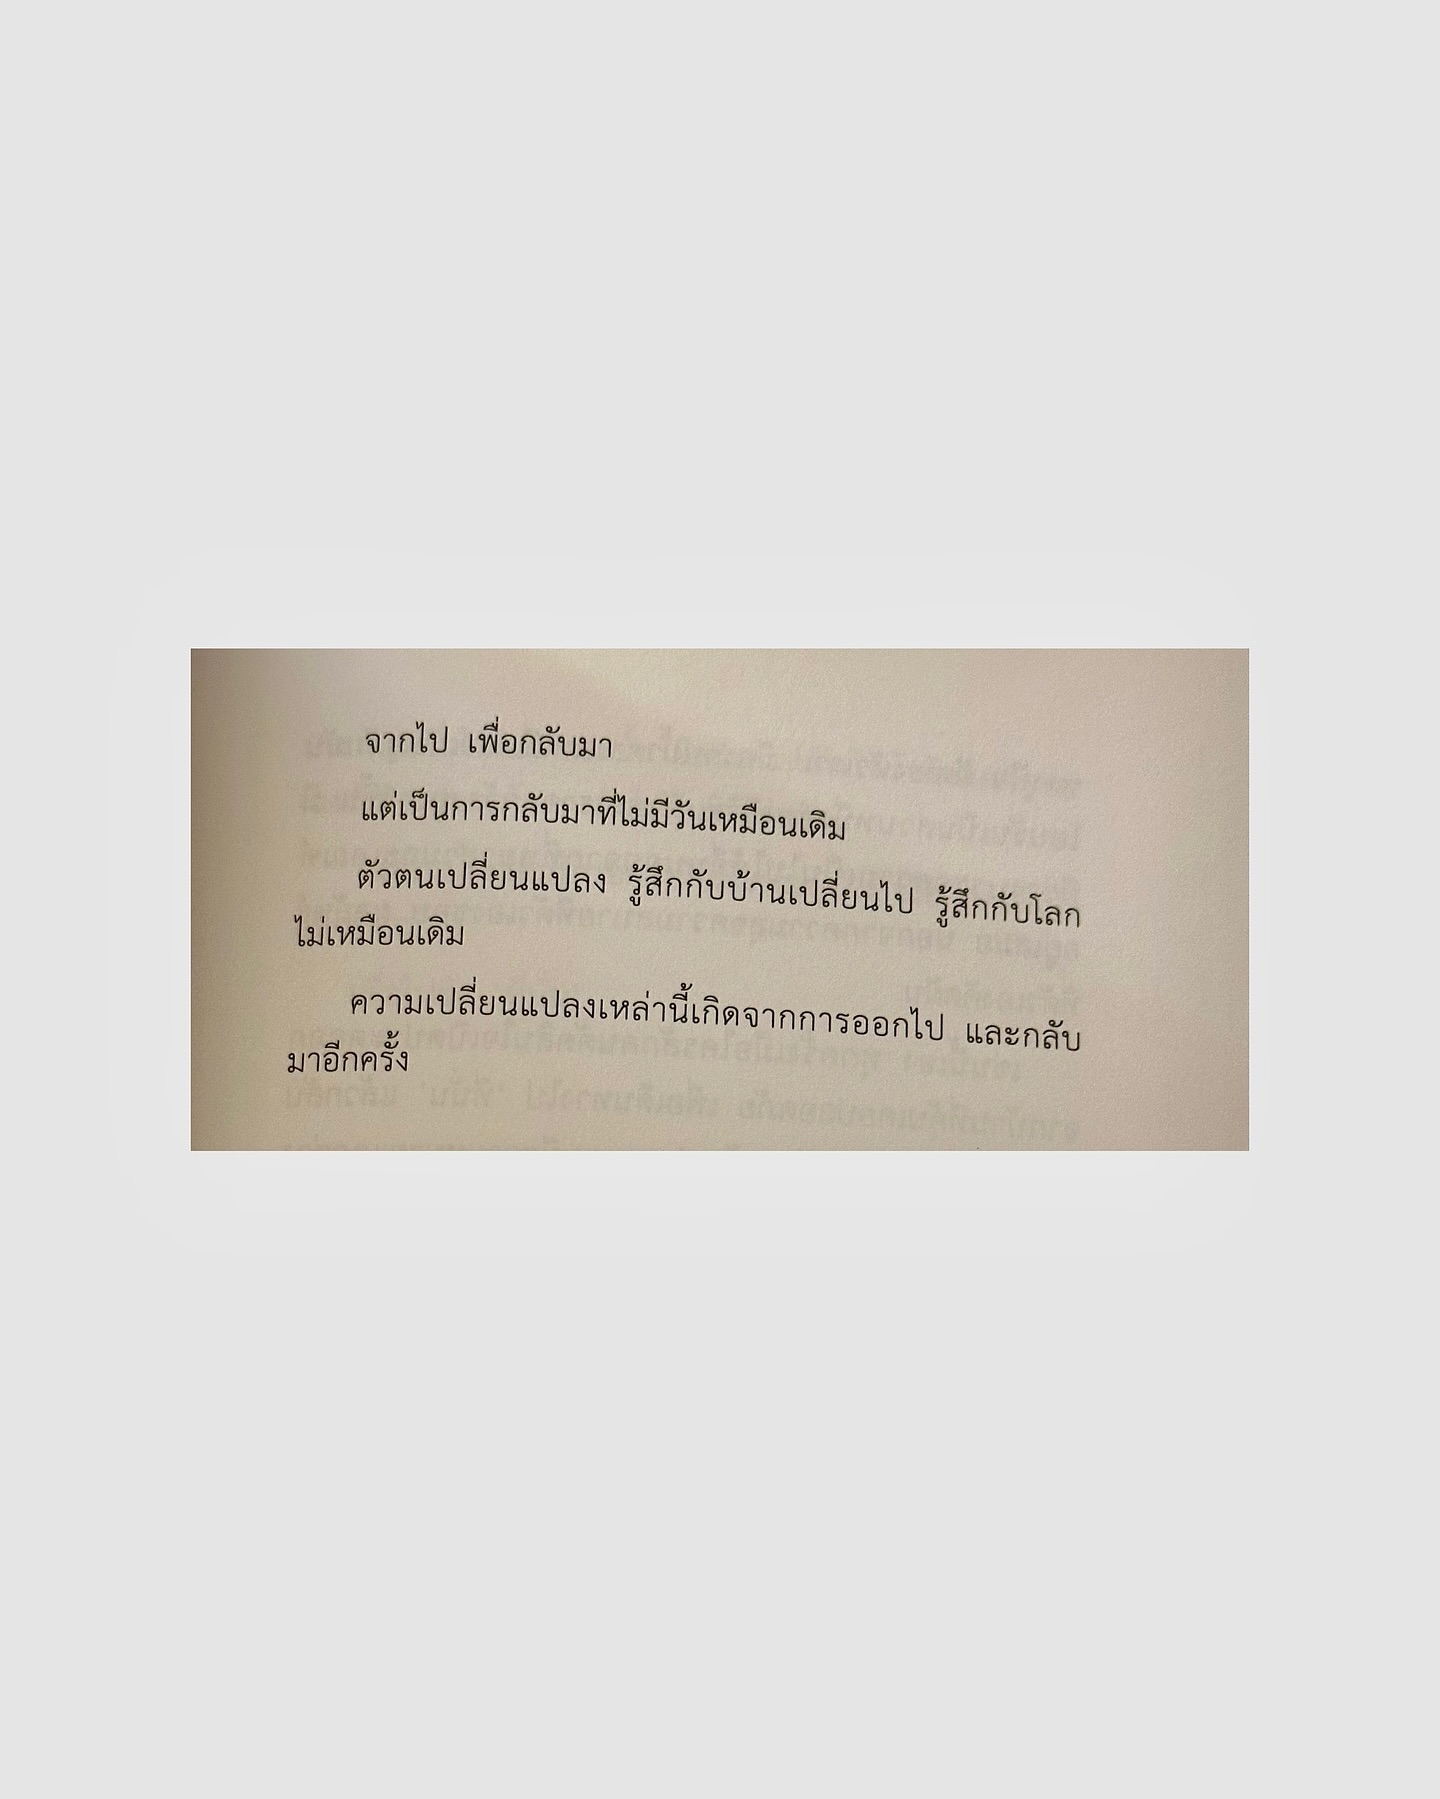 จากไป เพื่อกลับมา
แต่เป็นการกลับมาที่ไม่มีวันเหมือนเดิม
ตัวตนเปลี่ยนแปลง รู้สึกกับบ้านเปลี่ยนไป รู้สึกกับโลก
ไม่เหมือนเดิม
ความเปลี่ยนแปลงเหล่านี้เกิดจากการออกไป และกลับ
มาอีกครั้ง